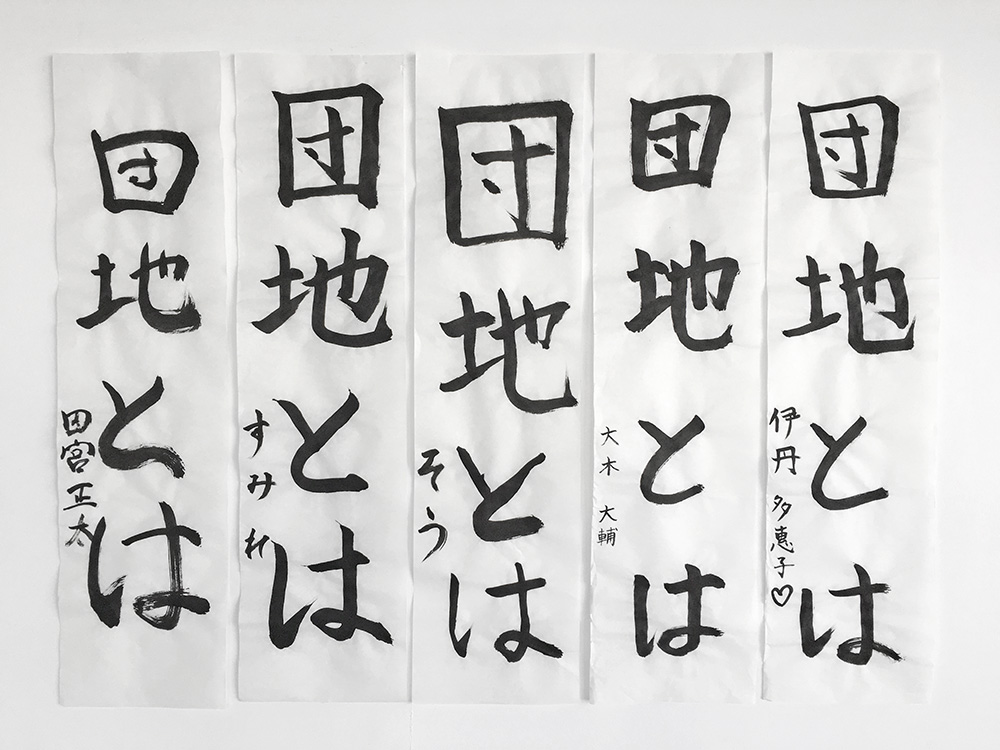 団地とは
伊丹 多恵子♡
団地とは
大木 大輔
団地とは
そう
団地とは
すみれ
団地とは
田宮正太